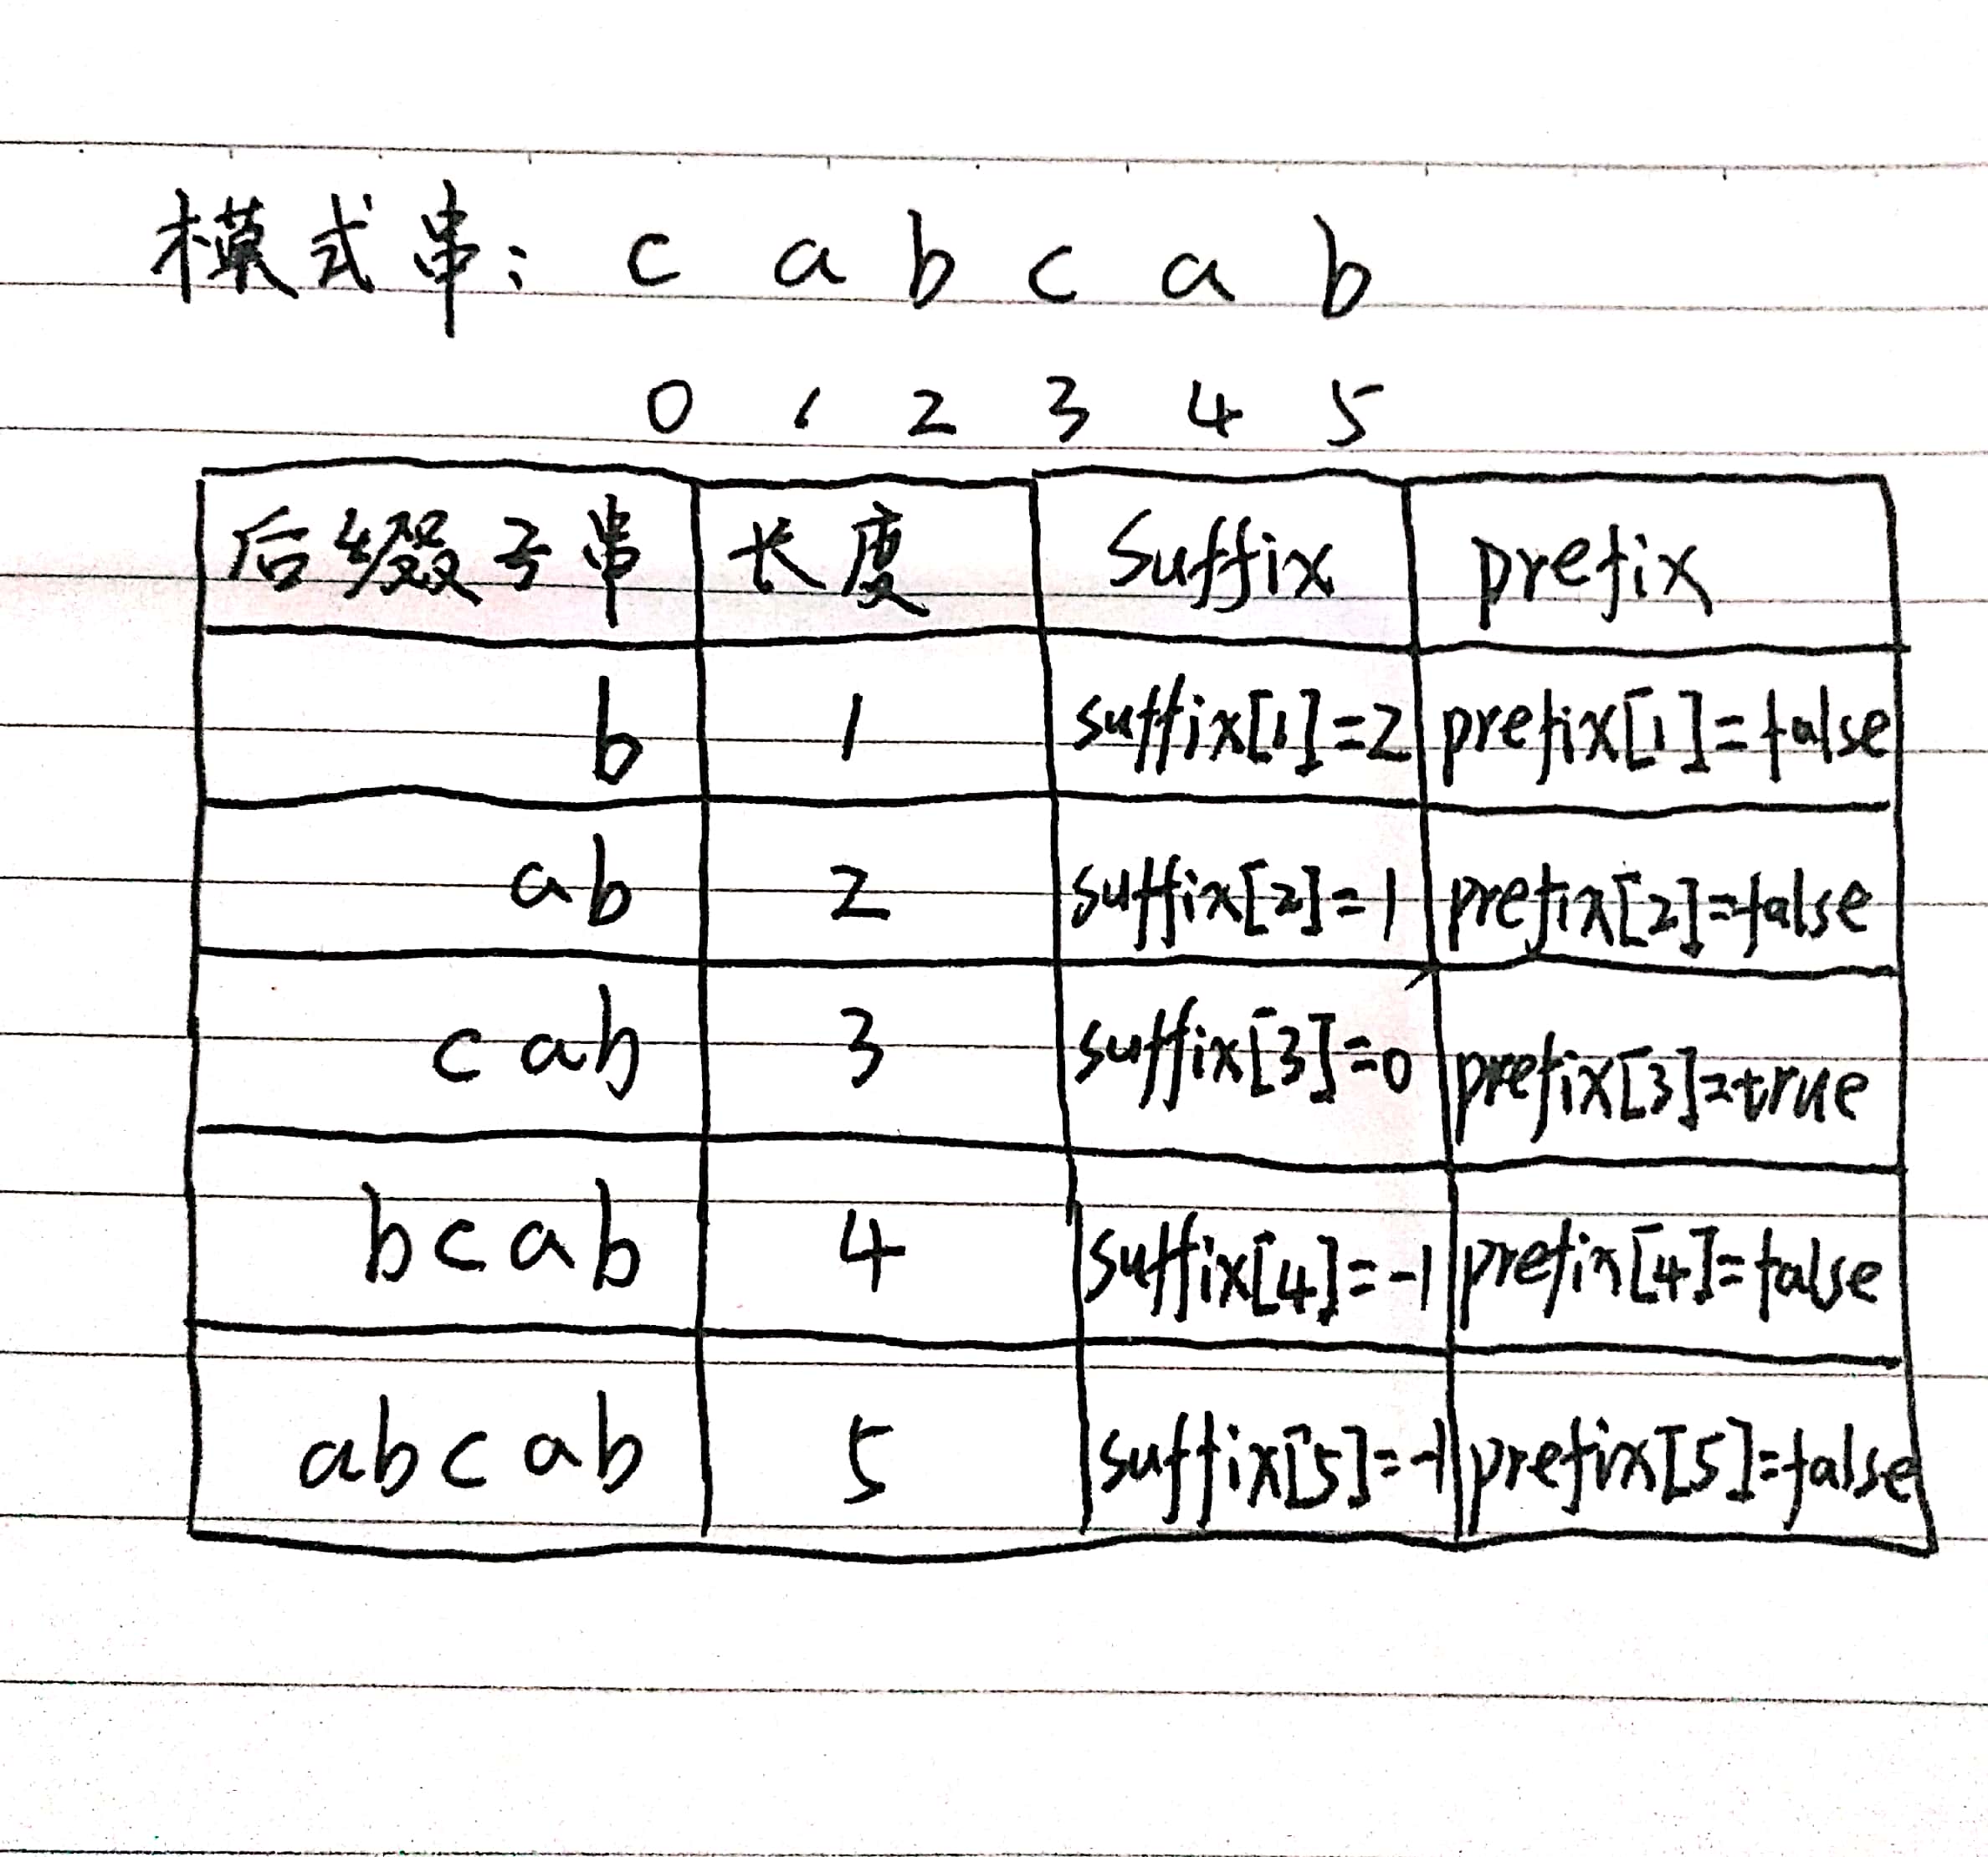 模式串: c a b c a b
0 1 2 3 4 5
后缀子串 长度 suffix prefix
b 1 suffix[1]=2 prefix[1]=false
ab 2 suffix[2]=1 prefix[2]=false
cab 3 suffix[3]=0 prefix[3]=true
bcab 4 suffix[4]=-1 prefix[4]=false
abcab 5 suffix[5]=-1 prefix[5]=false